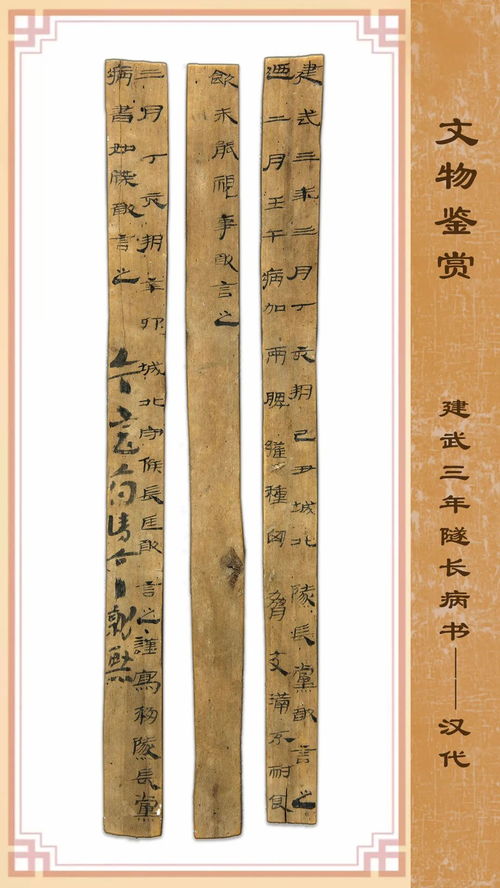 文物鉴赏
建武三年隧长病书——汉代
建武三年三月丁亥朔己丑城北隧長黨敢言之
迺二月壬午病加兩脾雍種匈脅丈滿不耐食
飲未能視事敢言之
三月丁亥朔辛卯城北守候長匡敢言之謹寫移隧長黨
病書如牒敢言之 今言府請令就醫